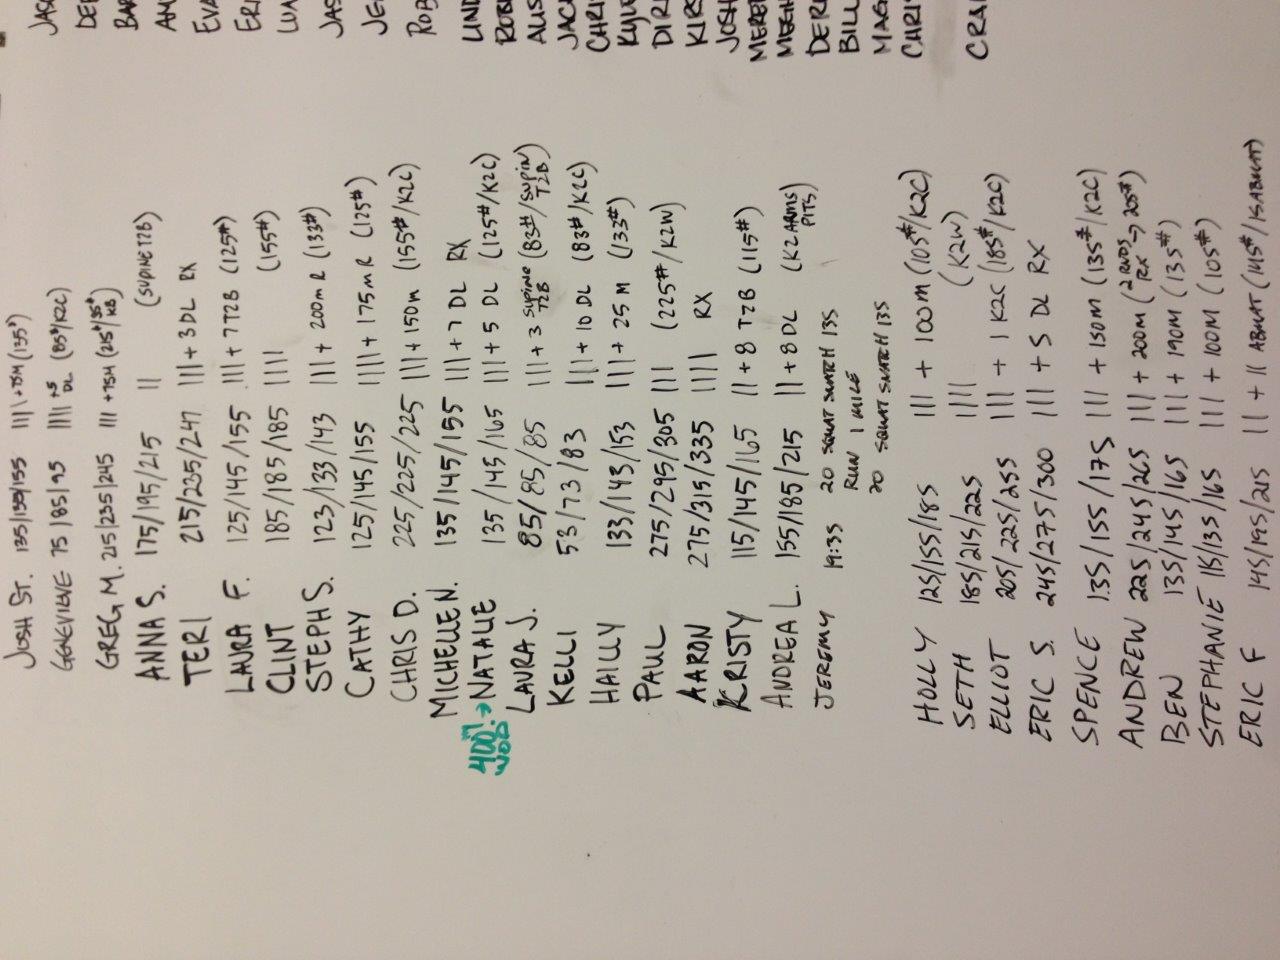 JOSH ST. 135/150/155 |||| +75M (135#)
GENEVIEVE 75/85/95 |||| +5 DL (85#/K2C)
GREG M. 215/235/245 ||| +75M (215#/35# KB)
ANNA S. 175/195/215 || (SUPINE T2B)
TERI 215/235/247 ||| + 3 DL RX
LAURA F. 125/145/155 ||| + 7 T2B (125#)
CLINT 185/185/185 |||| (155#)
STEPH S. 123/133/143 ||| + 200m R (133#)
CATHY 125/145/155 |||| + 175m R (125#)
CHRIS D. 225/225/225 ||| + 150m (155#/K2C)
MICHELLE N. 135/145/155 ||| + 7 DL RX
400m WOD → NATALIE 135/145/165 ||| + 5 DL (125#/K2C)
LAURA J. 85/85/85 ||| + 3 SUPINE T2B (83#/SUPIN T2B)
KELLI 53/73/83 ||| + 10 DL (83#/K2C)
HAILLY 133/143/153 ||| + 25 M (133#)
PAUL 275/295/305 ||| (225#/K2W)
AARON 275/315/335 |||| RX
KRISTY 115/145/165 || + 8 T2B (115#)
ANDREA L. 155/185/215 || + 8 DL (K2 ARMS PITS)
JEREMY 19:35 20 SQUAT SNATCH 135
RUN 1 MILE
20 SQUAT SNATCH 135
HOLLY 125/155/185 ||| + 100M (105#/K2C)
SETH 185/215/225 |||| (K2W)
ELLIOT 205/225/255 ||| + 1 K2C (185#/K2C)
ERIC S. 245/275/300 ||| + 5 DL RX
SPENCE 135/155/175 ||| + 150M (135#/K2C)
ANDREW 225/245/265 ||| + 200M (2 RNDS RX → 205#)
BEN 135/145/165 ||| + 190M (135#)
STEPHANIE 115/135/165 ||| + 100M (105#)
ERIC F 145/195/215 || + 11 ABMAT (145#/15ABMAT)
JASO
DE
BAR
AM
EVA
ERI
LUA
JAS
JE
ROB
LIND
ROBI
AUS
JAC
CHRI
KYLE
DIR
KIRS
JOSH
MERE
MEGH
DER
BILL
MAG
CHRI
CRA